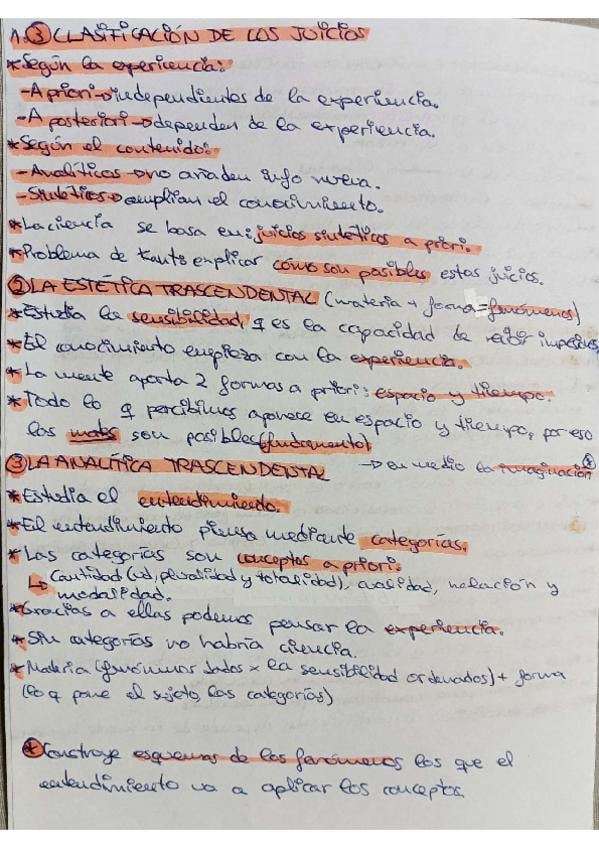 1.③ CLASIFICACIÓN DE LOS JUICIOS
*Según la experiencia:
-A priori→independientes de la experiencia.
-A posteriori→dependen de la experiencia.
*Según el contenido:
-Analíticos→no añaden info nueva.
-Sintéticos→amplían el conocimiento.
*La ciencia se basa en: juicios sintéticos a priori.
*Problema de Kant: explicar cómo son posibles estos juicios.
② LA ESTÉTICA TRASCENDENTAL (materia + forma = fenómenos)
*Estudia la sensibilidad, q es la capacidad de recibir impresiones
*El conocimiento empieza con la experiencia.
*La mente aporta 2 formas a priori: espacio y tiempo.
*Todo lo q percibimos aparece en espacio y tiempo, por eso
las mates son posibles (fundamento)
③ LA ANALÍTICA TRASCENDENTAL →en medio la imaginación ⊛
*Estudia el entendimiento.
*El entendimiento piensa mediante categorías.
*Las categorías son conceptos a priori.
↳ Cantidad (ud, pluralidad y totalidad), cualidad, relación y
modalidad.
*Gracias a ellas podemos pensar la experiencia.
*Sin categorías no habría ciencia.
*Materia (fenómenos dados x la sensibilidad ordenados) + forma
(lo q pone el sujeto las categorías)
⊛Construye esquemas de los fenómenos los que el
entendimiento va a aplicar los conceptos.